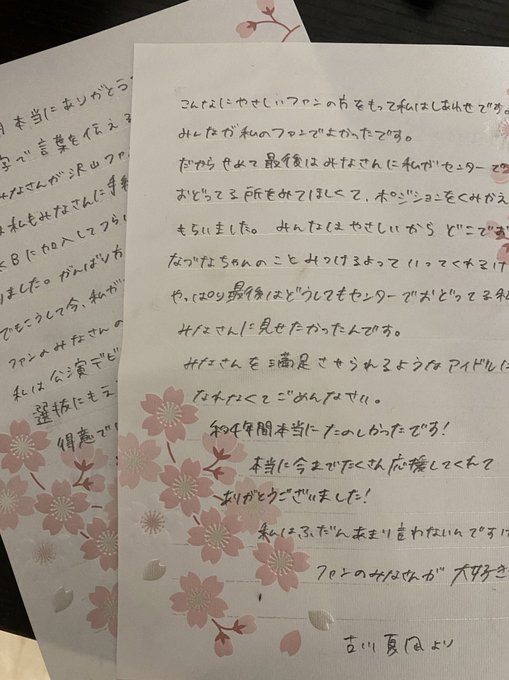 月 本当にありがとう
字で言葉を伝える
みなさんが沢山ファン
は私もみなさんに手紙
KBに加入してつら
りました。がんばり方
でもこうして今、私が
ファンのみなさんの
私は公演デビ
選抜にもえ
得意で
こんなにやさしいファンの方をもって私はしあわせです。
みんなが私のファンでよかったです。
だからせめて最後はみなさんに私がセンターで
おどってる所をみてほしくて、ポジションをくみかえ
もらいました。 みんなはやさしいから どこでお
なづなちゃんのこと みつけるよっていってくれるけ
やっぱり最後はどうしてもセンターでおどってる私
みなさんに見せたかったんです。
みなさんを満足させられるようなアイドルに
なれなくてごめんなさい。
約4年間本当にたのしかったです！
本当に今までたくさん応援してくれて
ありがとうございました！
私はふだんあまり言わないんですけ
ファンのみなさんが 大好き
古川夏凪より